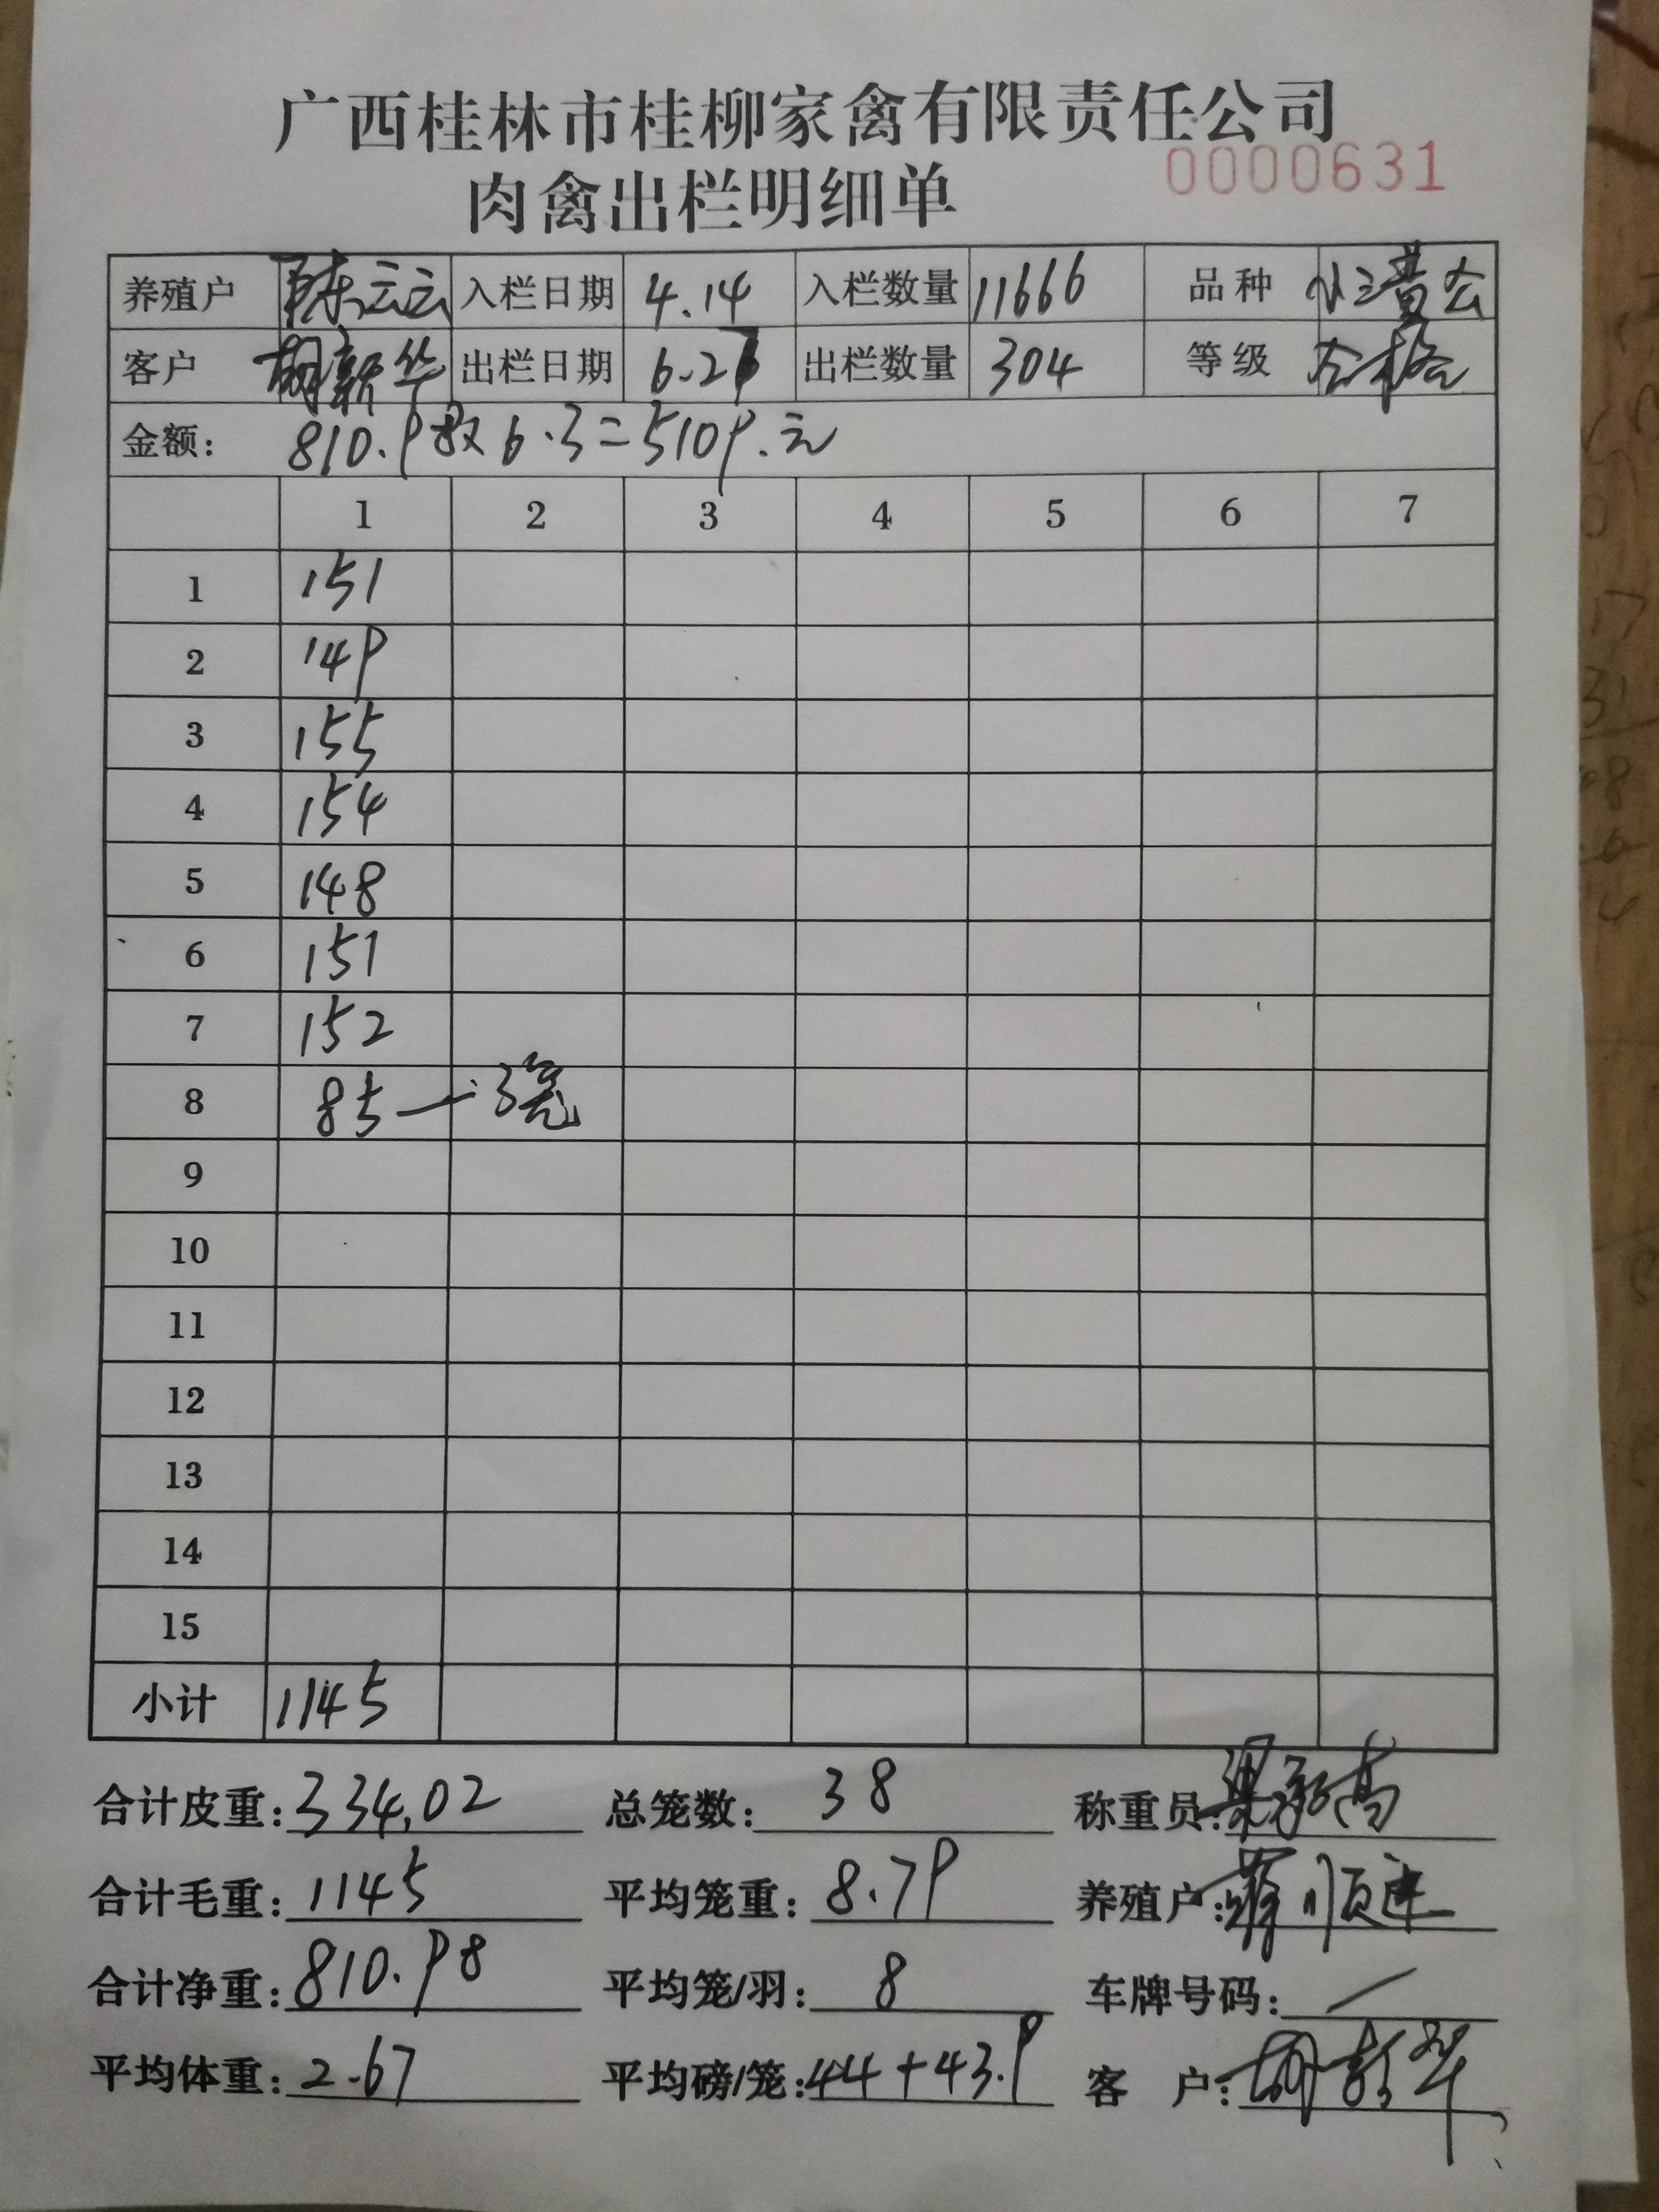 广西桂林市桂柳家禽有限责任公司
0000631
肉禽出栏明细单
养殖户 陈云云 入栏日期 4.14 入栏数量 11666 品种
客户 胡新华 出栏日期 6.27 出栏数量 304 等级 合格
金额: 810.9 6.3=5109.元
1 2 3 4 5 6 7
1 151
2 149
3 155
4 154
5 148
6 151
7 152
8 85 — 3笼
9
10
11
12
13
14
15
小计 1145
合计皮重: 334.02 总笼数: 38 称重员:
合计毛重: 1145 平均笼重: 8.79 养殖户:
合计净重: 810.98 平均笼/羽: 8 车牌号码: /
平均体重: 2.67 平均磅/笼: 44+43.9 客 户: 胡新华